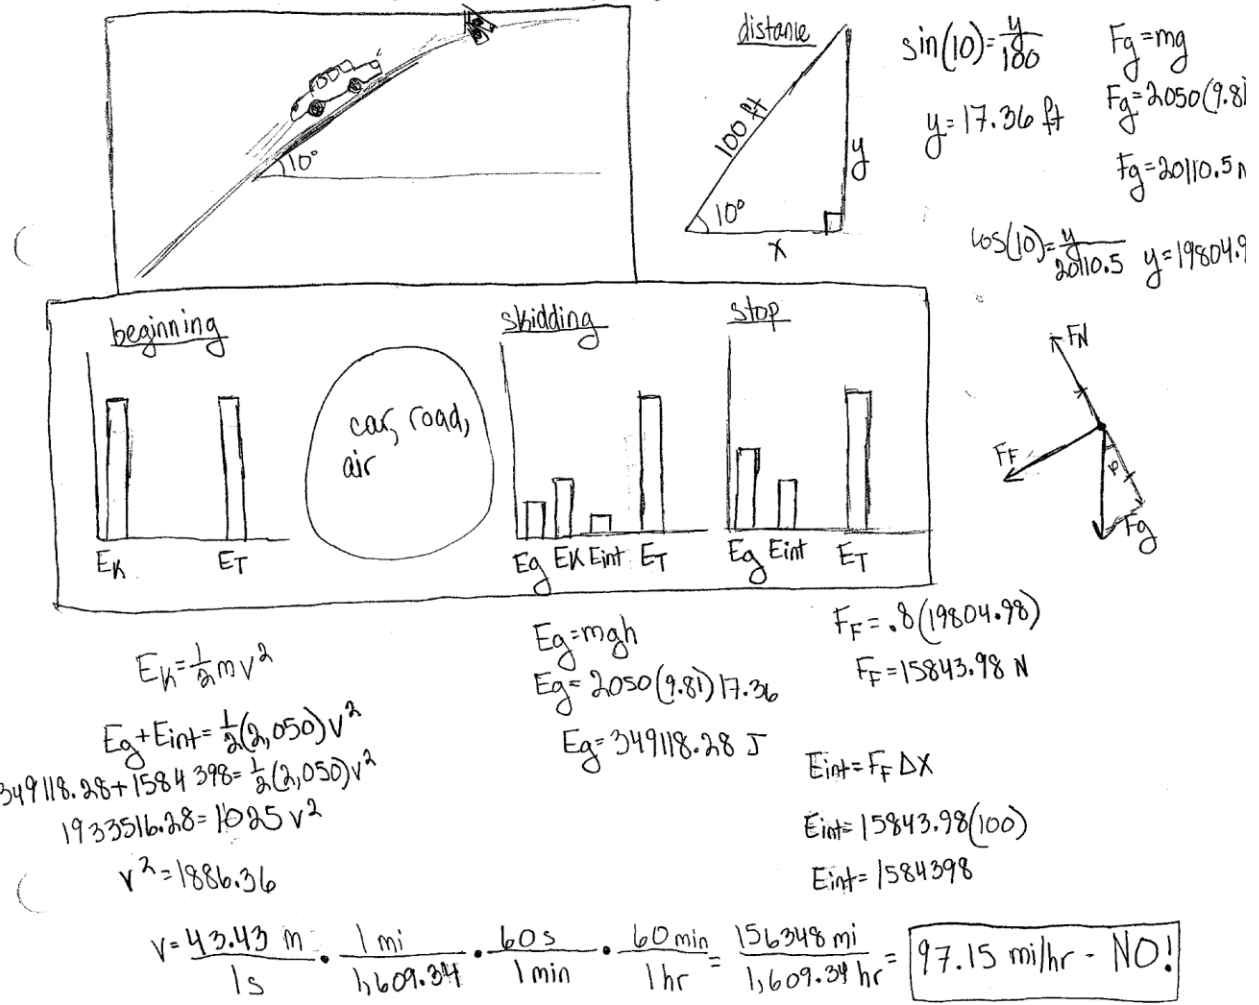 10°
distance
100 ft
10°
y
x
sin(10)=y/100
y=17.36 ft
Fg=mg
Fg=2050(9.81
Fg=20110.5 N
cos(10)=y/20110.5 y=19804.9
beginning
EK ET
car, road,
air
skidding
Eg EK Eint ET
stop
Eg Eint ET
FN
FF
Fg
EK=1/2mv²
Eg+Eint=1/2(2,050)v²
349118.28+1584398=1/2(2,050)v²
1933516.28=1025v²
v²=1886.36
Eg=mgh
Eg=2050(9.81)17.36
Eg=349118.28 J
FF=.8(19804.98)
FF=15843.98 N
Eint=FFΔX
Eint=15843.98(100)
Eint=1584398
v=43.43 m/1s • 1 mi/1,609.34 • 60s/1 min • 60 min/1 hr = 156348 mi/1,609.34 hr = 97.15 mi/hr - NO!